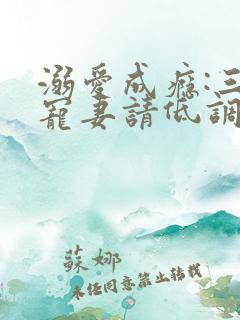 溺愛成癮:三
寵妻請低調
蘇娜
未經同意禁止轉載